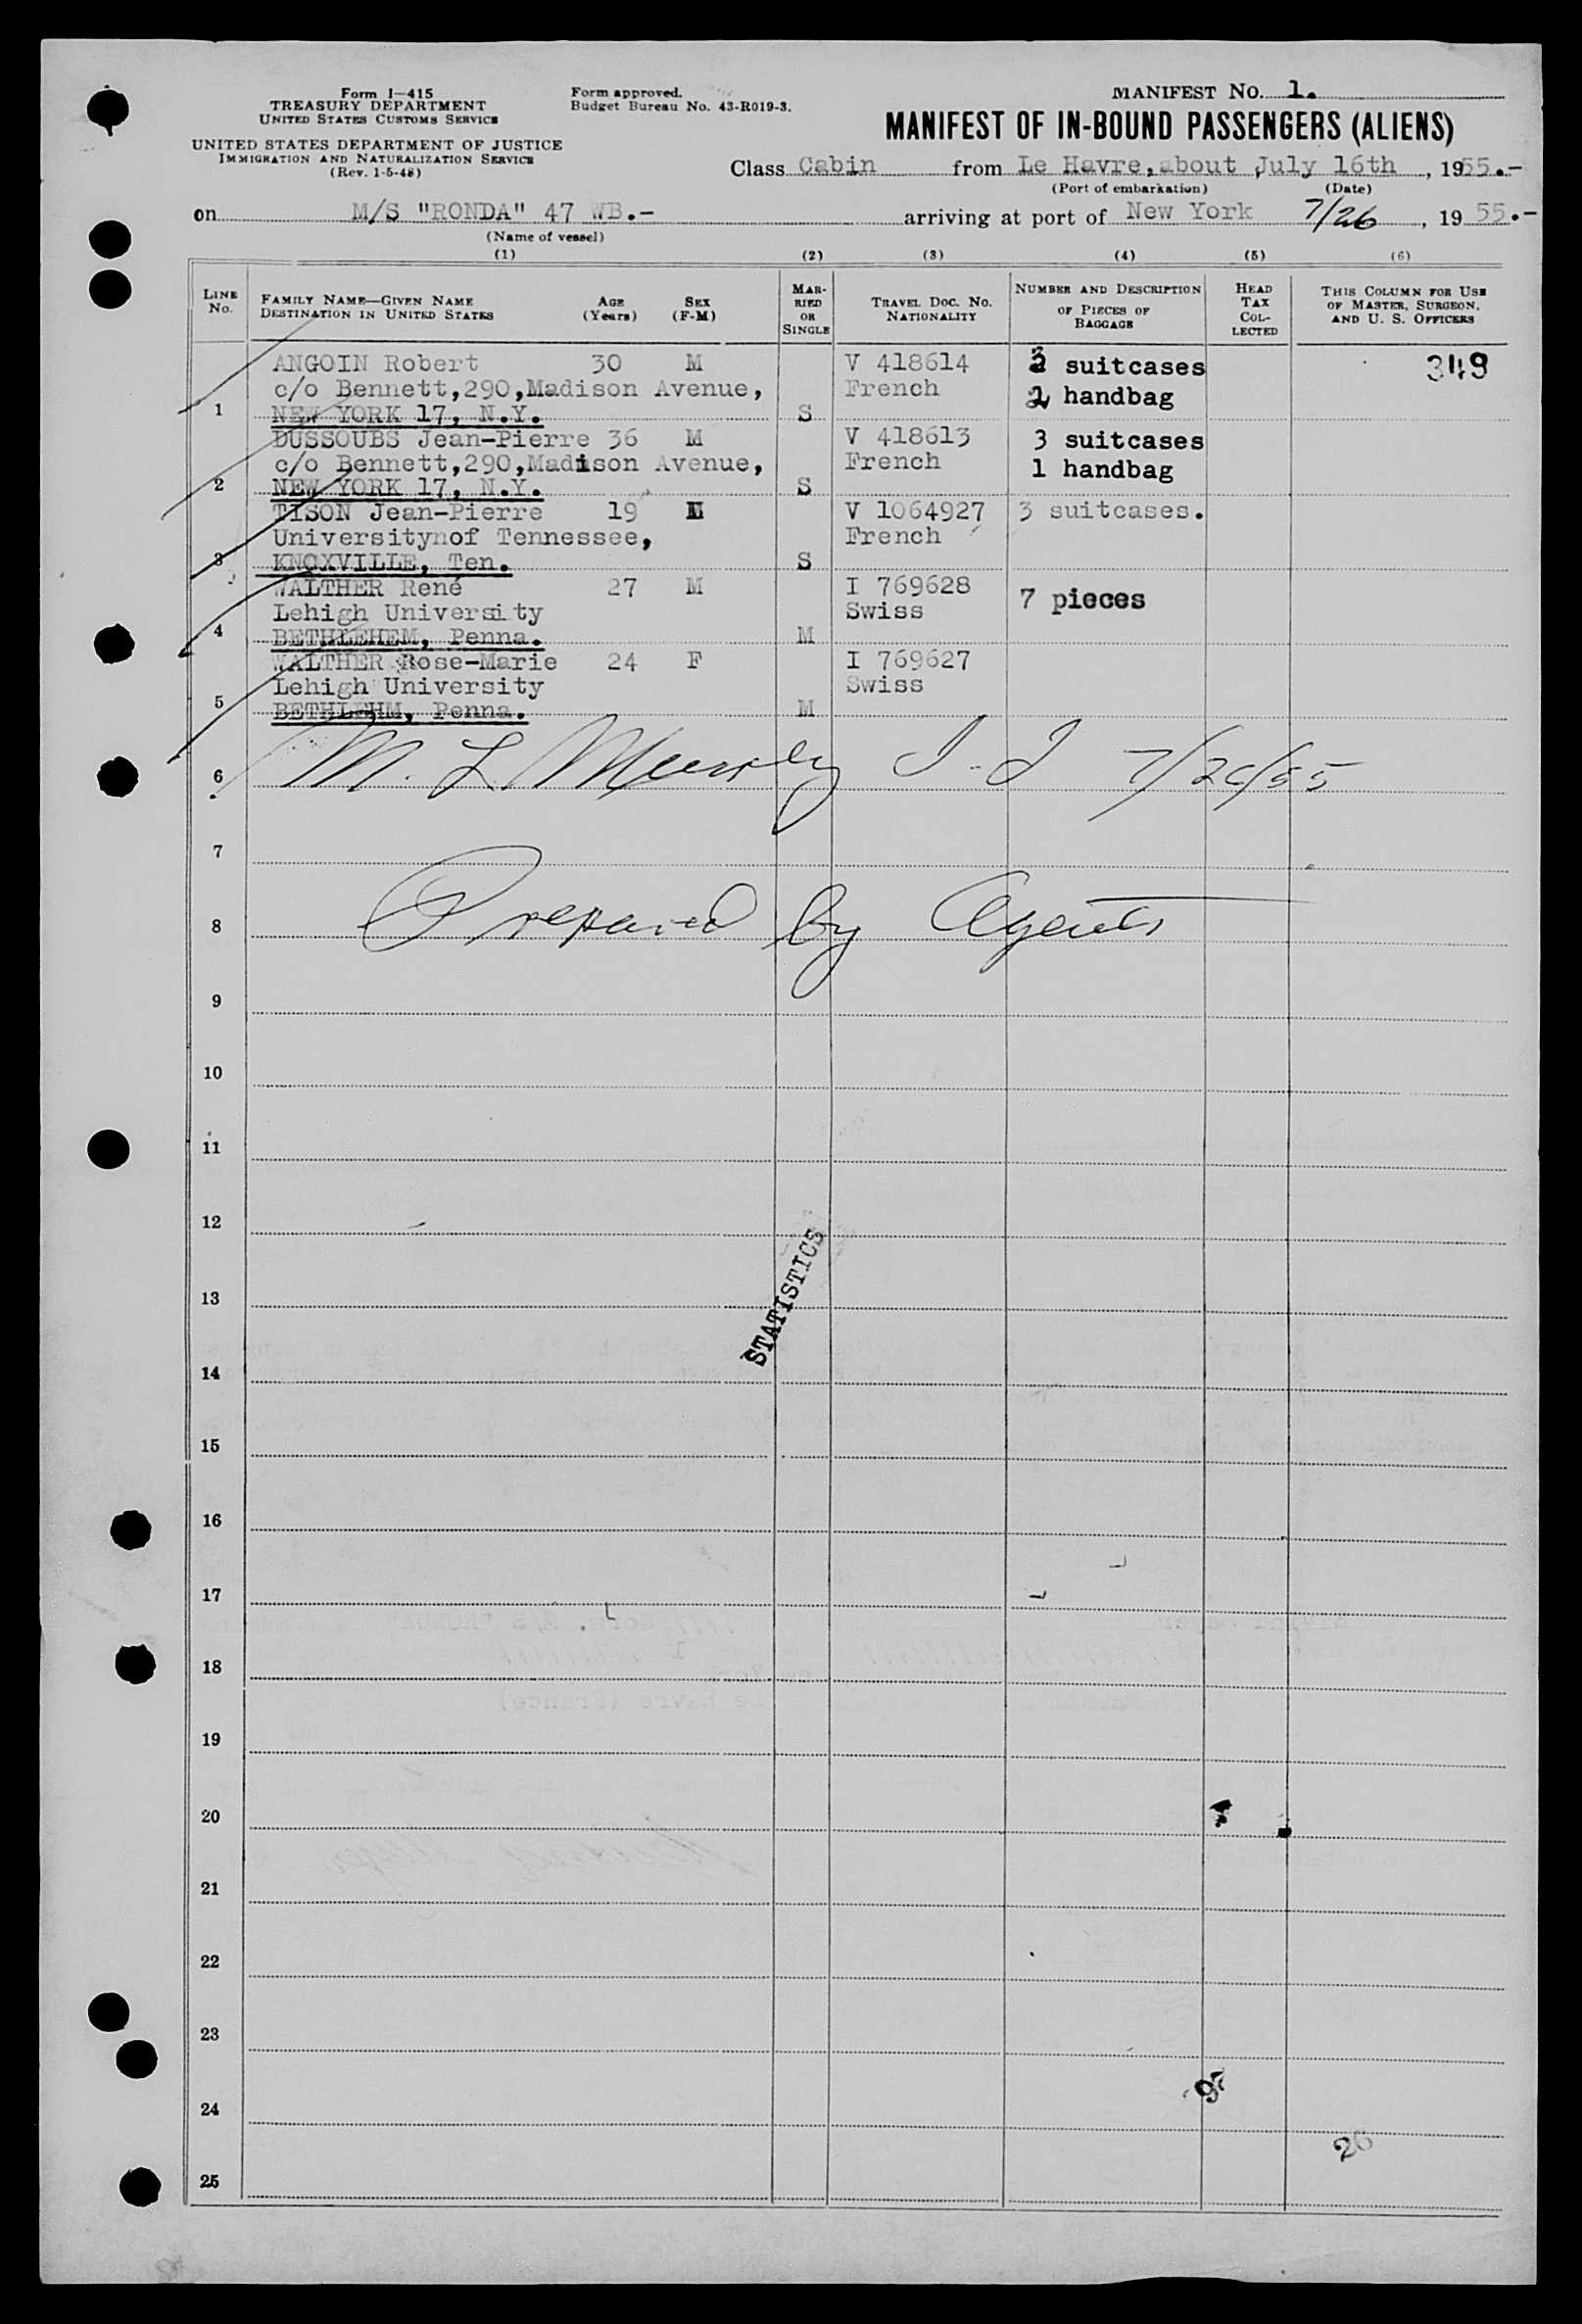 Form I—415
TREASURY DEPARTMENT
UNITED STATES CUSTOMS SERVICE
UNITED STATES DEPARTMENT OF JUSTICE
IMMIGRATION AND NATURALIZATION SERVICE
(Rev. 1-5-48)
Form approved.
Budget Bureau No. 43-R019-3.
MANIFEST NO. 1.
MANIFEST OF IN-BOUND PASSENGERS (ALIENS)
Class Cabin from Le Havre, about July 16th, 1955.-
(Port of embarkation) (Date)
on M/S "RONDA" 47 WB.- arriving at port of New York 7/26, 1955.-
(Name of vessel)
(1) (2) (3) (4) (5) (6)
LINE NO.
FAMILY NAME—GIVEN NAME
DESTINATION IN UNITED STATES
AGE (Years)
SEX (F-M)
MARRIED OR SINGLE
TRAVEL DOC. NO.
NATIONALITY
NUMBER AND DESCRIPTION OF PIECES OF BAGGAGE
HEAD TAX COLLECTED
THIS COLUMN FOR USE OF MASTER, SURGEON, AND U. S. OFFICERS
ANGOIN Robert 30 M V 418614 suitcases 349
c/o Bennett,290,Madison Avenue, French 2 handbag
1 NEW YORK 17, N.Y. S
DUSSOUBS Jean-Pierre 36 M V 418613 3 suitcases
c/o Bennett,290,Madison Avenue, French 1 handbag
2 NEW YORK 17, N.Y. S
TISON Jean-Pierre 19 M V 1064927 3 suitcases.
Universitynof Tennessee, French
3 KNOXVILLE, Ten. S
WALTHER René 27 M I 769628 7 pieces
Lehigh University Swiss
4 BETHLEHEM, Penna. M
WALTHER Rose-Marie 24 F I 769627
Lehigh University Swiss
5 BETHLEHM, Penna. M
6 M. L. Murphy I.I 7/26/55
7
8 Prepared by Agents
9
10
11
12
13
STATISTICS
14
15
16
17
18
19
20
21
22
23
24
26
25